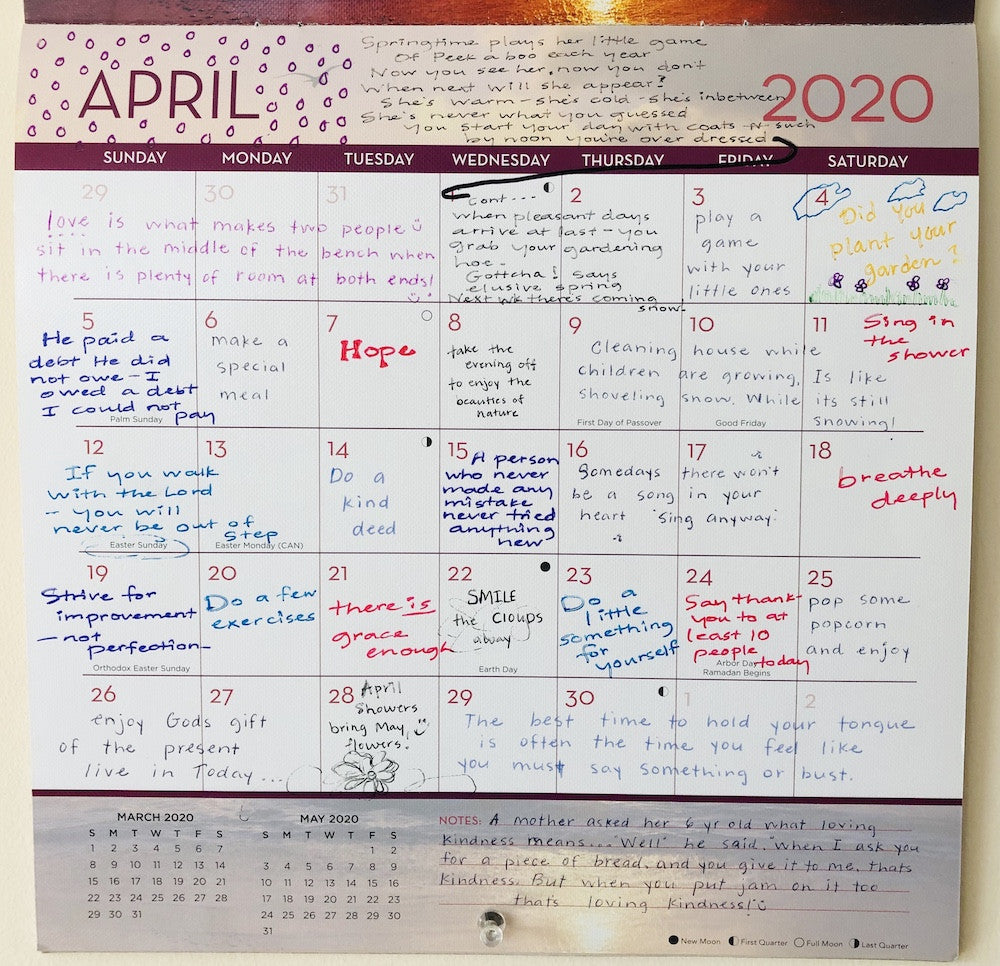 APRIL
Springtime plays her little game
Of Peek a boo each year
Now you see her, now you don't
When next will she appear?
She's warm - she's cold - she's inbetween
She's never what you guessed
You start your day with coats -n- such
by noon you're over dressed
2020
SUNDAY MONDAY TUESDAY WEDNESDAY THURSDAY FRIDAY SATURDAY
29 30 31
love is what makes two people
sit in the middle of the bench when
there is plenty of room at both ends!
1 2
cont...
when pleasant days
arrive at last - you
grab your gardening
hoe.
Gottcha! says
elusive spring
Next wk there's coming
snow.
3
play a
game
with your
little ones
4
Did you
plant your
garden?
5
He paid a
debt He did
not owe - I
owed a debt
I could not
pay
Palm Sunday
6
make a
special
meal
7
Hope
8
take the
evening off
to enjoy the
beauties of
nature
9 10 11
Cleaning house while
children are growing,
shoveling snow. While
Is like
its still
snowing!
First Day of Passover
Good Friday
Sing in
the
shower
12 13
If you walk
with the Lord
- you will
never be out of
step
Easter Sunday
Easter Monday (CAN)
14
Do a
kind
deed
15
A person
who never
made any
mistake
never tried
anything
new
16 17
Somedays there won't
be a song in your
heart 'sing anyway'
18
breathe
deeply
19
Strive for
improvement
- not
perfection -
Orthodox Easter Sunday
20
Do a few
exercises
21
there is
grace
enough
22
SMILE
the CLOUDS
away
Earth Day
23
Do a
little
something
for
yourself
24
Say thank
you to at
least 10
people
today
Arbor Day
Ramadan Begins
25
pop some
popcorn
and enjoy
26 27
enjoy Gods gift
of the present
live in Today...
28
April
showers
bring May
flowers!
29 30 1 2
The best time to hold your tongue
is often the time you feel like
you must say something or bust.
MARCH 2020
S M T W T F S
1 2 3 4 5 6 7
8 9 10 11 12 13 14
15 16 17 18 19 20 21
22 23 24 25 26 27 28
29 30 31
MAY 2020
S M T W T F S
1 2
3 4 5 6 7 8 9
10 11 12 13 14 15 16
17 18 19 20 21 22 23
24 25 26 27 28 29 30
31
NOTES: A mother asked her 6 yr old what loving
kindness means... "Well" he said. "When I ask you
for a piece of bread, and you give it to me, thats
kindness. But when you put jam on it too
thats loving kindness!"
New Moon First Quarter Full Moon Last Quarter